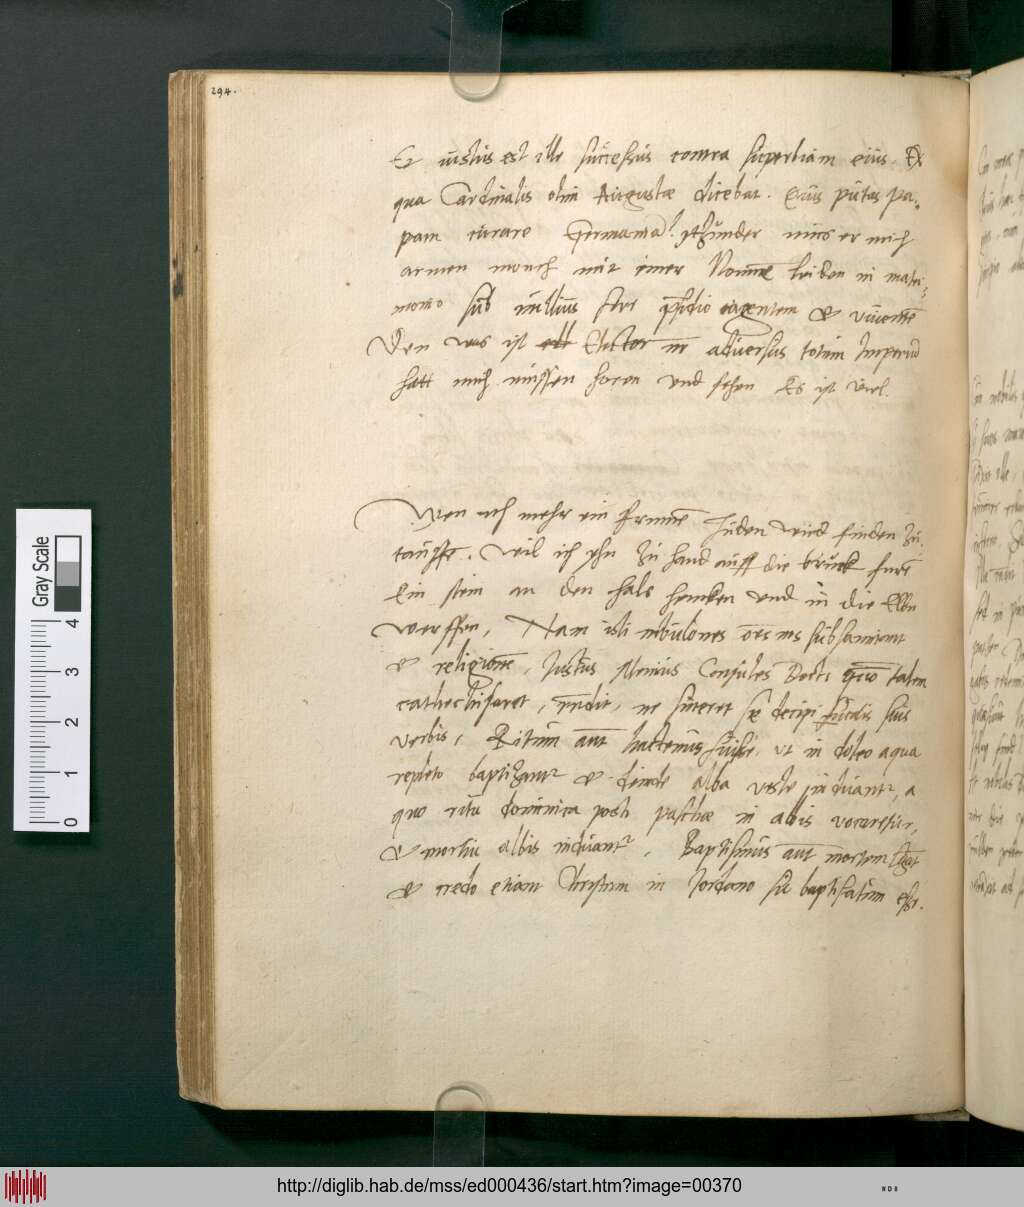 294.
Et iustus est ille successus contra superbiam eius. Ex
qua Cardinalis olim Augustae dicebat. Eius putas pa-
pam curare Germaniã? Ithzunder mus er mich
armen monch mit einer Nonne leiden in matri-
monio sub nullius fere p̃sidio agentem et viuentẽ
Den was ist Elector adversus totum Imperiũ
hatt mich mussen horen und sehen Es ist viel.
Wen ich mehr ein frumẽ Juden wird finden zu
tauffẽ, wil ich yhn zu hand auff die bruck furẽ
Ein stein an den hals hencken und in die Elbe
werffen, Nam isti nebulones oẽs nos subsannant
et religionẽ, Justus Menius Consules Docto quõ talem
cathechisaret, rñdit, ne sineret se decipi suis
verbis, Ritum aũt hactenus fuisse, ut in doleo aqua
repleto baptizantr et deinde alba veste induantr, a
quo ritu dominica post paschae in albis vocaretur,
et mortui albis induantr, Baptismus aũt mortem
et credo etiam Christum in Jordano sic baptisatum esse.
Gray Scale
4
3
2
1
0
http://diglib.hab.de/mss/ed000436/start.htm?image=00370